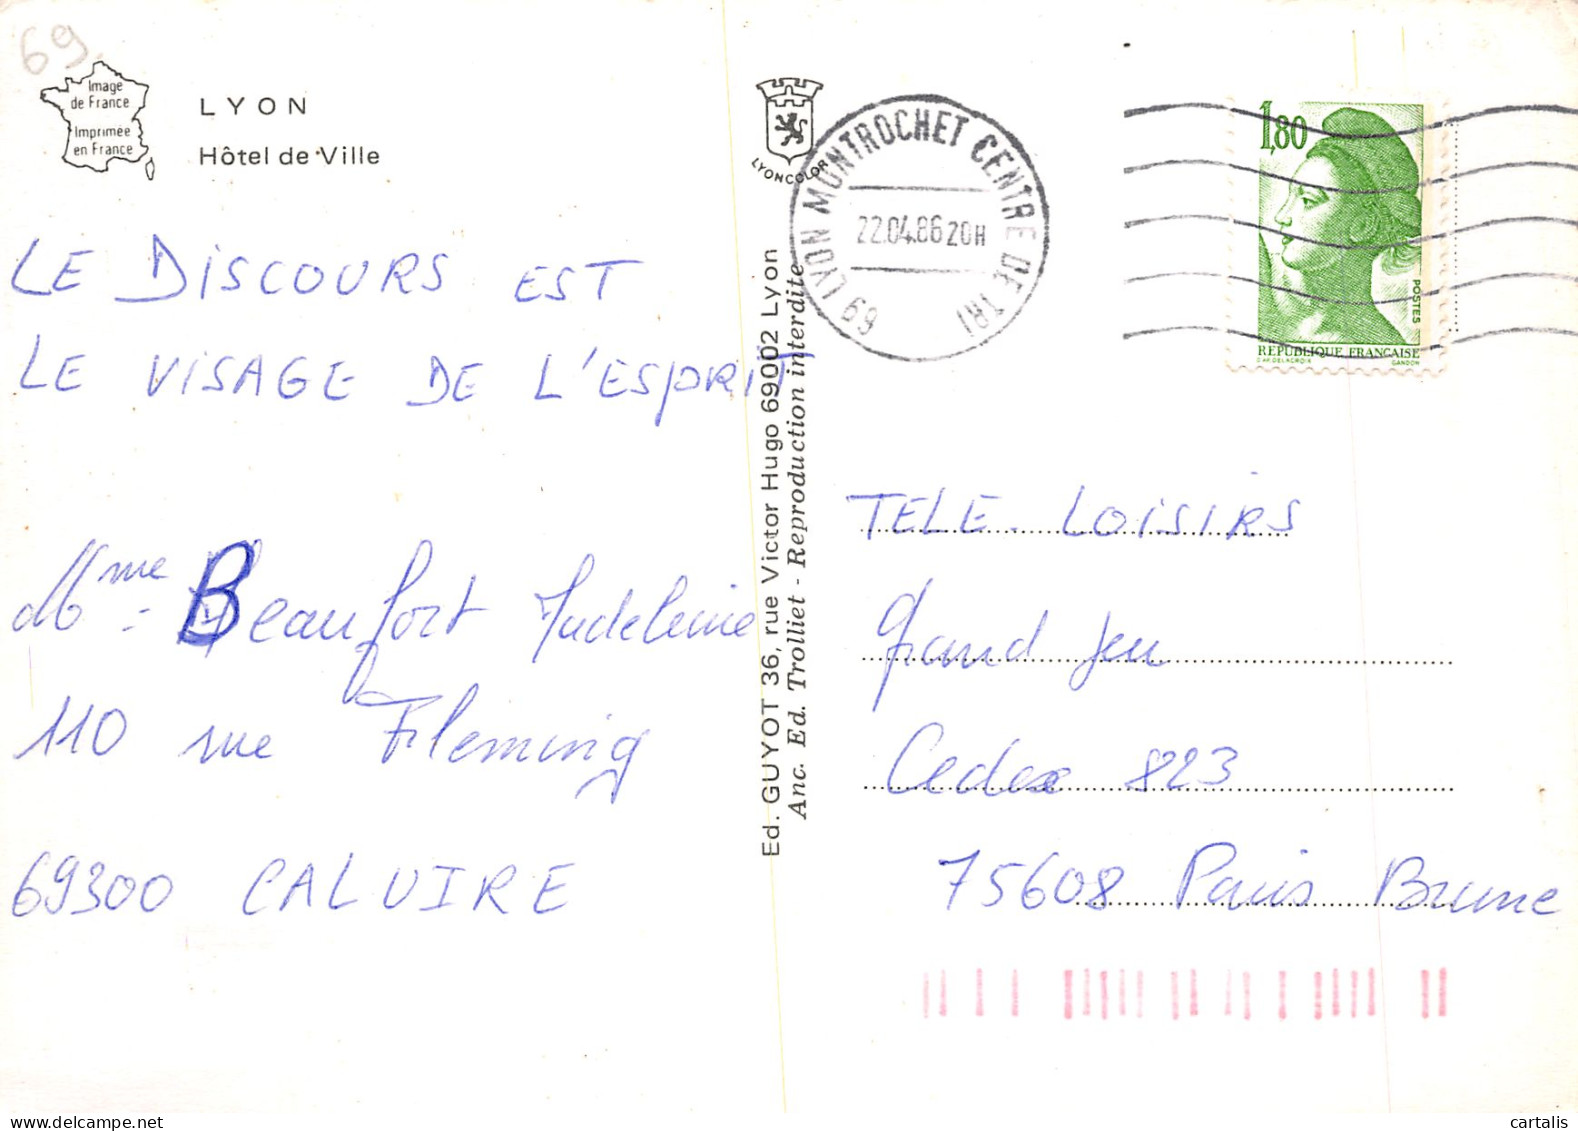 69
Image
de France
Imprimée
en France
LYON
Hôtel de Ville
LE DISCOURS EST
LE VISAGE DE L'ESPRIT
Mme Beaufort Madeleine
110 rue Fleming
69300 CALUIRE
LYONCOLOR
Ed. GUYOT 36, rue Victor Hugo 69002 Lyon
Anc. Ed. Trolliet - Reproduction interdite
69 LYON MONTROCHET CENTRE DE TRI
22.04.86 20H
1,80
POSTES
REPUBLIQUE FRANÇAISE
D'AP. DELACROIX GANDON
TELE-LOISIRS
Grand Jeu
Cedex 823
75608 Paris Brune
© cartalis
www.delcampe.net
cartalis